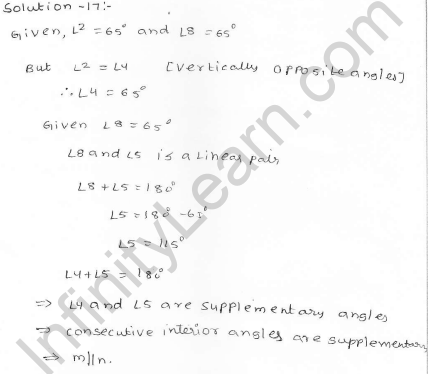 Solution-17:-
Given, L2 = 65° and L8 = 65°
But L2 = L4 [Vertically opposite angles]
∴ L4 = 65°
Given L8 = 65°
L8 and L5 is a Linear pair
L8 + L5 = 180°
L5 = 180° - 65°
L5 = 115°
L4+L5 = 180°
⇒ L4 and L5 are supplementary angles
⇒ consecutive interior angles are supplementary
⇒ m||n.
InfinityLearn.com